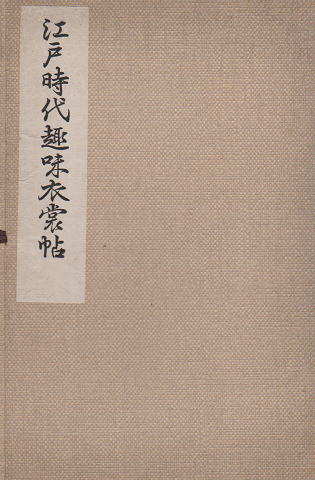 江戸時代趣味衣裳帖